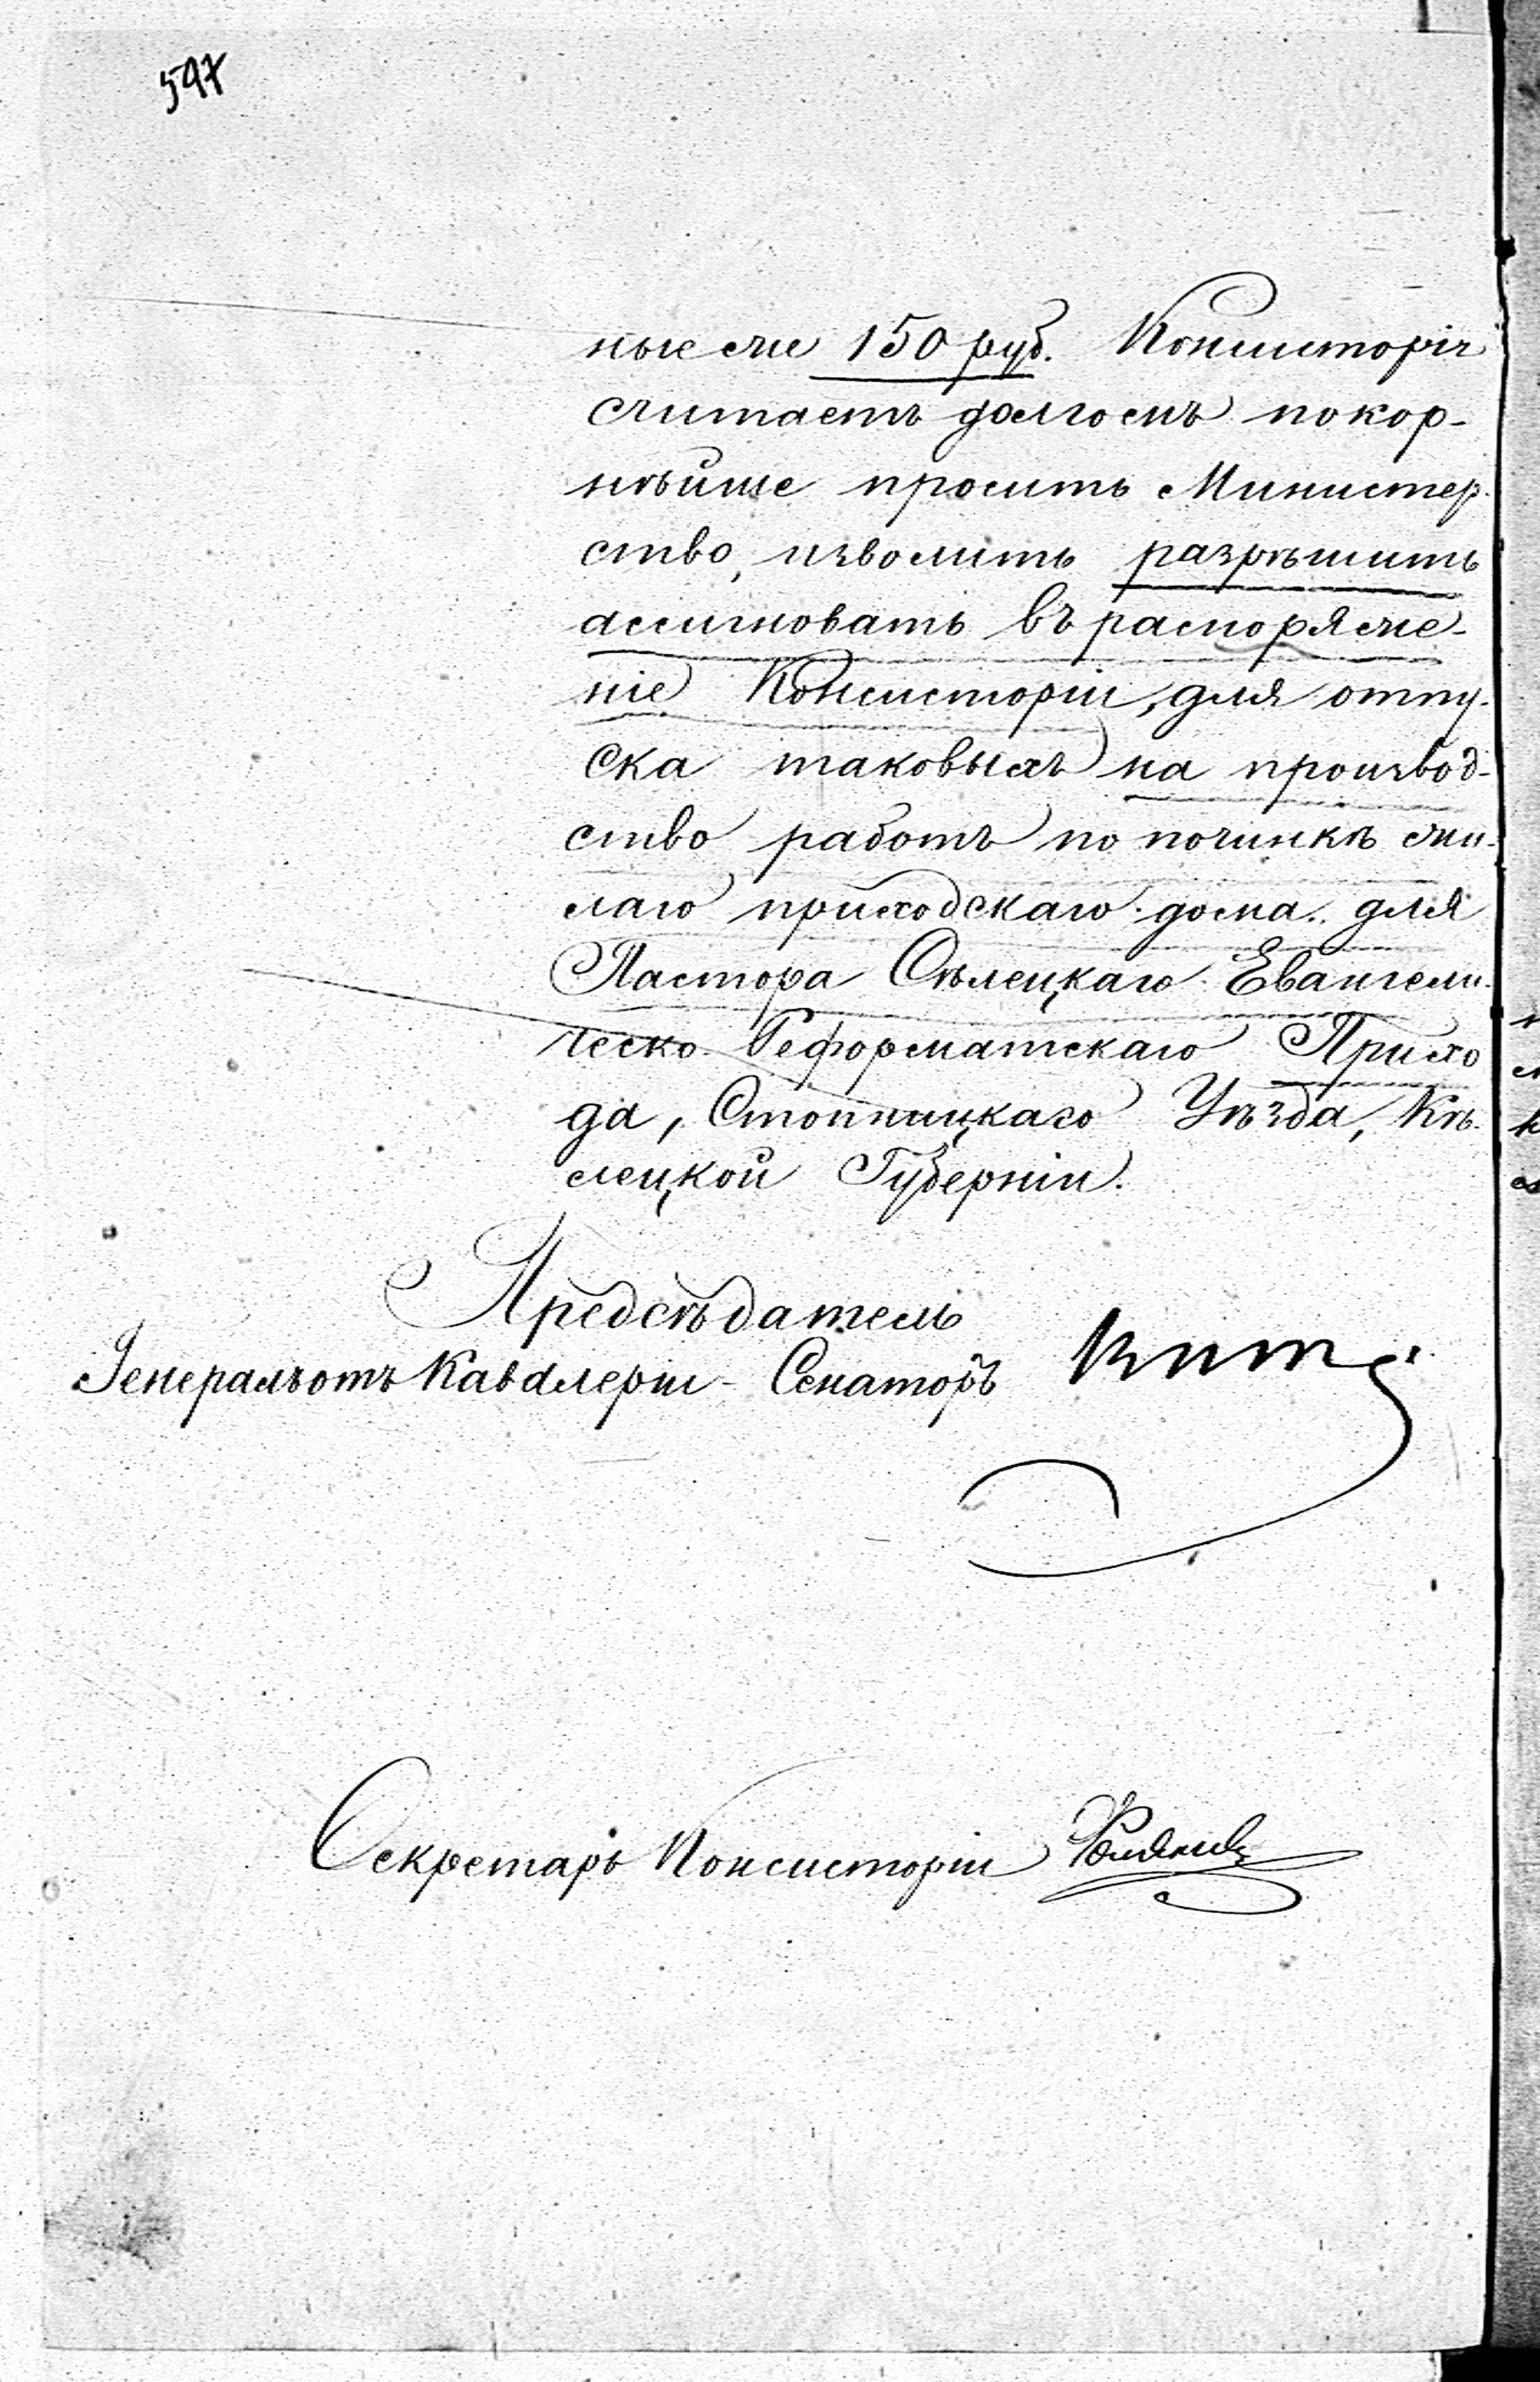 597
ные же 150 руб. Консисторія
считаетъ долгомъ покор-
нѣйше просить Министер-
ство, изволить разрѣшить
ассигновать въ распоряже-
ніе Консисторіи, для отпу-
ска таковыхъ на производ-
ство работъ по починкѣ жи-
лаго приходскаго дома для
Пастора Сѣлецкаго Евангели-
ческо Реформатскаго Прихо
да, Стопницкаго Уѣзда, Кѣ-
лецкой Губерніи.
Предсѣдатель
Генералъ отъ Кавалеріи - Сенаторъ
Секретарь Консисторіи